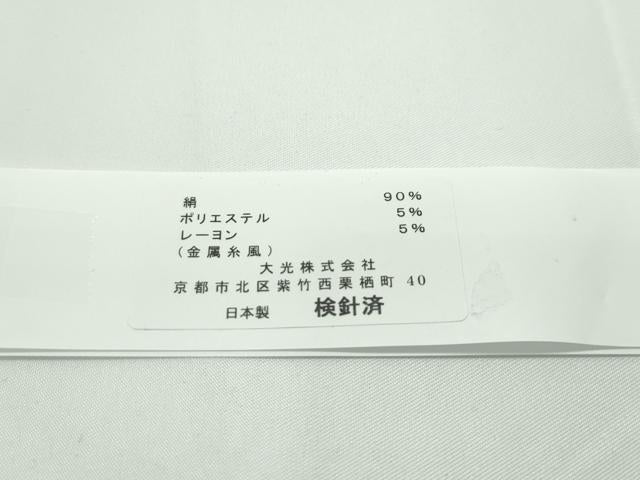 絹 90%
ポリエステル 5%
レーヨン 5%
(金属糸風)
大光株式会社
京都市北区紫竹西栗栖町 40
日本製 検針済